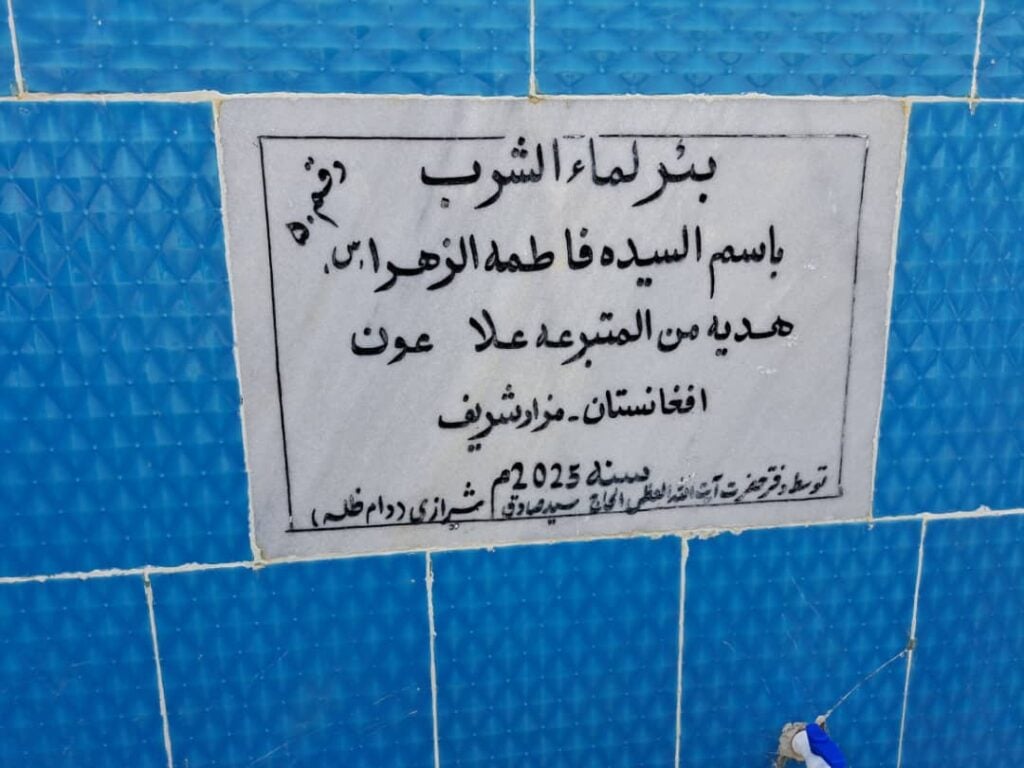 بئر لماء الشرب
رقم ۵۰
باسم السيده فاطمه الزهرا (س)
هديه من المتبرعه علا عون
افغانستان - مزارشريف
سنه 2025م
توسط دفتر حضرت آیت الله العظمی الحاج سید صادق شیرازی (دام ظله)